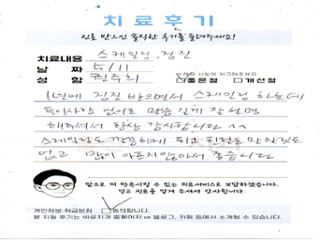 치료후기
진료 받으신 솔직한 후기를 들려주세요!
치료내용 스케일링, 검진
날 짜 5/11
성 함
좋은점 개선점
1년에 검진 받으면서 스케일링 하는데
특이사항 없어도 말씀 길게 잘 설명
해주셔서 항상 감사합니다 ^^
스케일링도 꼼꼼하게 피고
없고 많이 아프지 않아서 좋습니다
앞으로 더 만족시킬 수 있는 의료서비스로 보답하겠습니다.
개인정보 취급방침 동의합니다.
본 치료 후기는 바로치과 홈페이지 or 블로그, 카페 등에서 소개될 수 있습니다.